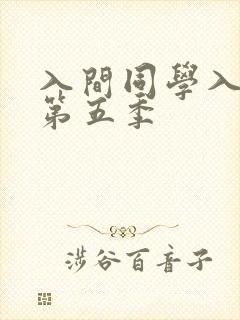 入間同學入
第五季
涉谷百音子